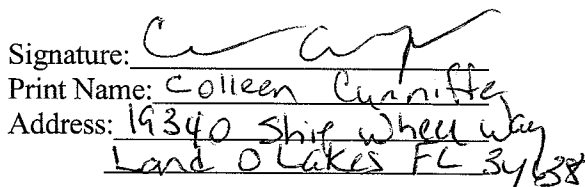 Signature:
Print Name: Colleen Cunniffe
Address: 19340 Ship Wheel Way
Land O Lakes FL 34638